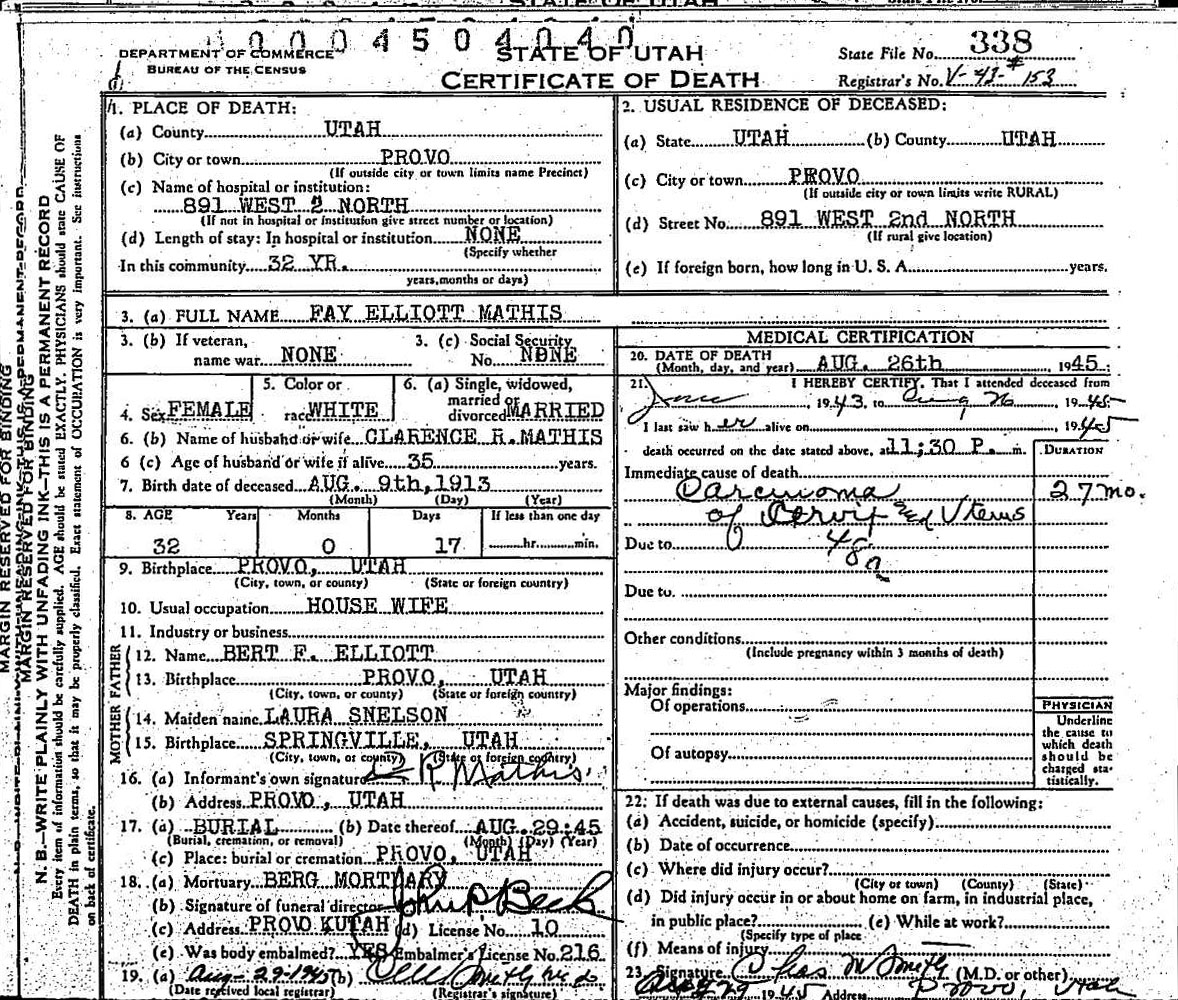 0004504040
DEPARTMENT OF COMMERCE
BUREAU OF THE CENSUS
STATE OF UTAH
CERTIFICATE OF DEATH
State File No. 338
Registrar's No. V-41-#153
MARGIN RESERVED FOR BINDING
N. B.—WRITE PLAINLY WITH UNFADING INK—THIS IS A PERMANENT RECORD
Every item of information should be carefully supplied. AGE should be stated EXACTLY. PHYSICIANS should state CAUSE OF
DEATH in plain terms, so that it may be properly classified. Exact statement of OCCUPATION is very important. See instructions
on back of certificate.
1. PLACE OF DEATH:
(a) County UTAH
(b) City or town PROVO
(If outside city or town limits name Precinct)
(c) Name of hospital or institution:
891 WEST 2 NORTH
(If not in hospital or institution give street number or location)
(d) Length of stay: In hospital or institution NONE
(Specify whether
In this community 32 YR.
years, months or days)
2. USUAL RESIDENCE OF DECEASED:
(a) State UTAH (b) County UTAH
(c) City or town PROVO
(If outside city or town limits write RURAL)
(d) Street No. 891 WEST 2nd NORTH
(If rural give location)
(e) If foreign born, how long in U. S. A. years.
3. (a) FULL NAME FAY ELLIOTT MATHIS
3. (b) If veteran, name war NONE
3. (c) Social Security No. NONE
4. Sex FEMALE
5. Color or race WHITE
6. (a) Single, widowed, married or divorced MARRIED
6. (b) Name of husband or wife CLARENCE R. MATHIS
6 (c) Age of husband or wife if alive 35 years.
7. Birth date of deceased AUG. 9th, 1913
(Month) (Day) (Year)
8. AGE Years Months Days If less than one day
32 0 17 hr. min.
9. Birthplace PROVO, UTAH
(City, town, or county) (State or foreign country)
10. Usual occupation HOUSE WIFE
11. Industry or business
FATHER
12. Name BERT F. ELLIOTT
13. Birthplace PROVO, UTAH
(City, town, or county) (State or foreign country)
MOTHER
14. Maiden name LAURA SNELSON
15. Birthplace SPRINGVILLE, UTAH
(City, town, or county) (State or foreign country)
16. (a) Informant's own signature C R Mathis
(b) Address PROVO, UTAH
17. (a) BURIAL (b) Date thereof AUG. 29:45
(Burial, cremation, or removal) (Month) (Day) (Year)
(c) Place: burial or cremation PROVO, UTAH
18. (a) Mortuary BERG MORTUARY
(b) Signature of funeral director John P Beck
(c) Address PROVO KUTAH (d) License No. 10
(e) Was body embalmed? YES Embalmer's License No. 216
19. (a) Aug-29-1945 (b)
(Date received local registrar) (Registrar's signature)
MEDICAL CERTIFICATION
20. DATE OF DEATH
(Month, day, and year) AUG. 26th 1945:
21. I HEREBY CERTIFY, That I attended deceased from
June, 1943, to Aug 26, 1945
I last saw her alive on, 1945
death occurred on the date stated above, at 11:30 P. m.
DURATION
Immediate cause of death
Carcinoma 27 mo.
of Cervix and Uterus
Due to 48a
Due to.
Other conditions
(Include pregnancy within 3 months of death)
Major findings:
Of operations
Of autopsy
PHYSICIAN
Underline
the cause to
which death
should be
charged sta-
tistically.
22. If death was due to external causes, fill in the following:
(a) Accident, suicide, or homicide (specify)
(b) Date of occurrence
(c) Where did injury occur?
(City or town) (County) (State)
(d) Did injury occur in or about home on farm, in industrial place,
in public place? (e) While at work?
(Specify type of place
(f) Means of injury
23. Signature Chas M Smith (M.D. or other)
Aug 29 1945 Address Provo, Utah